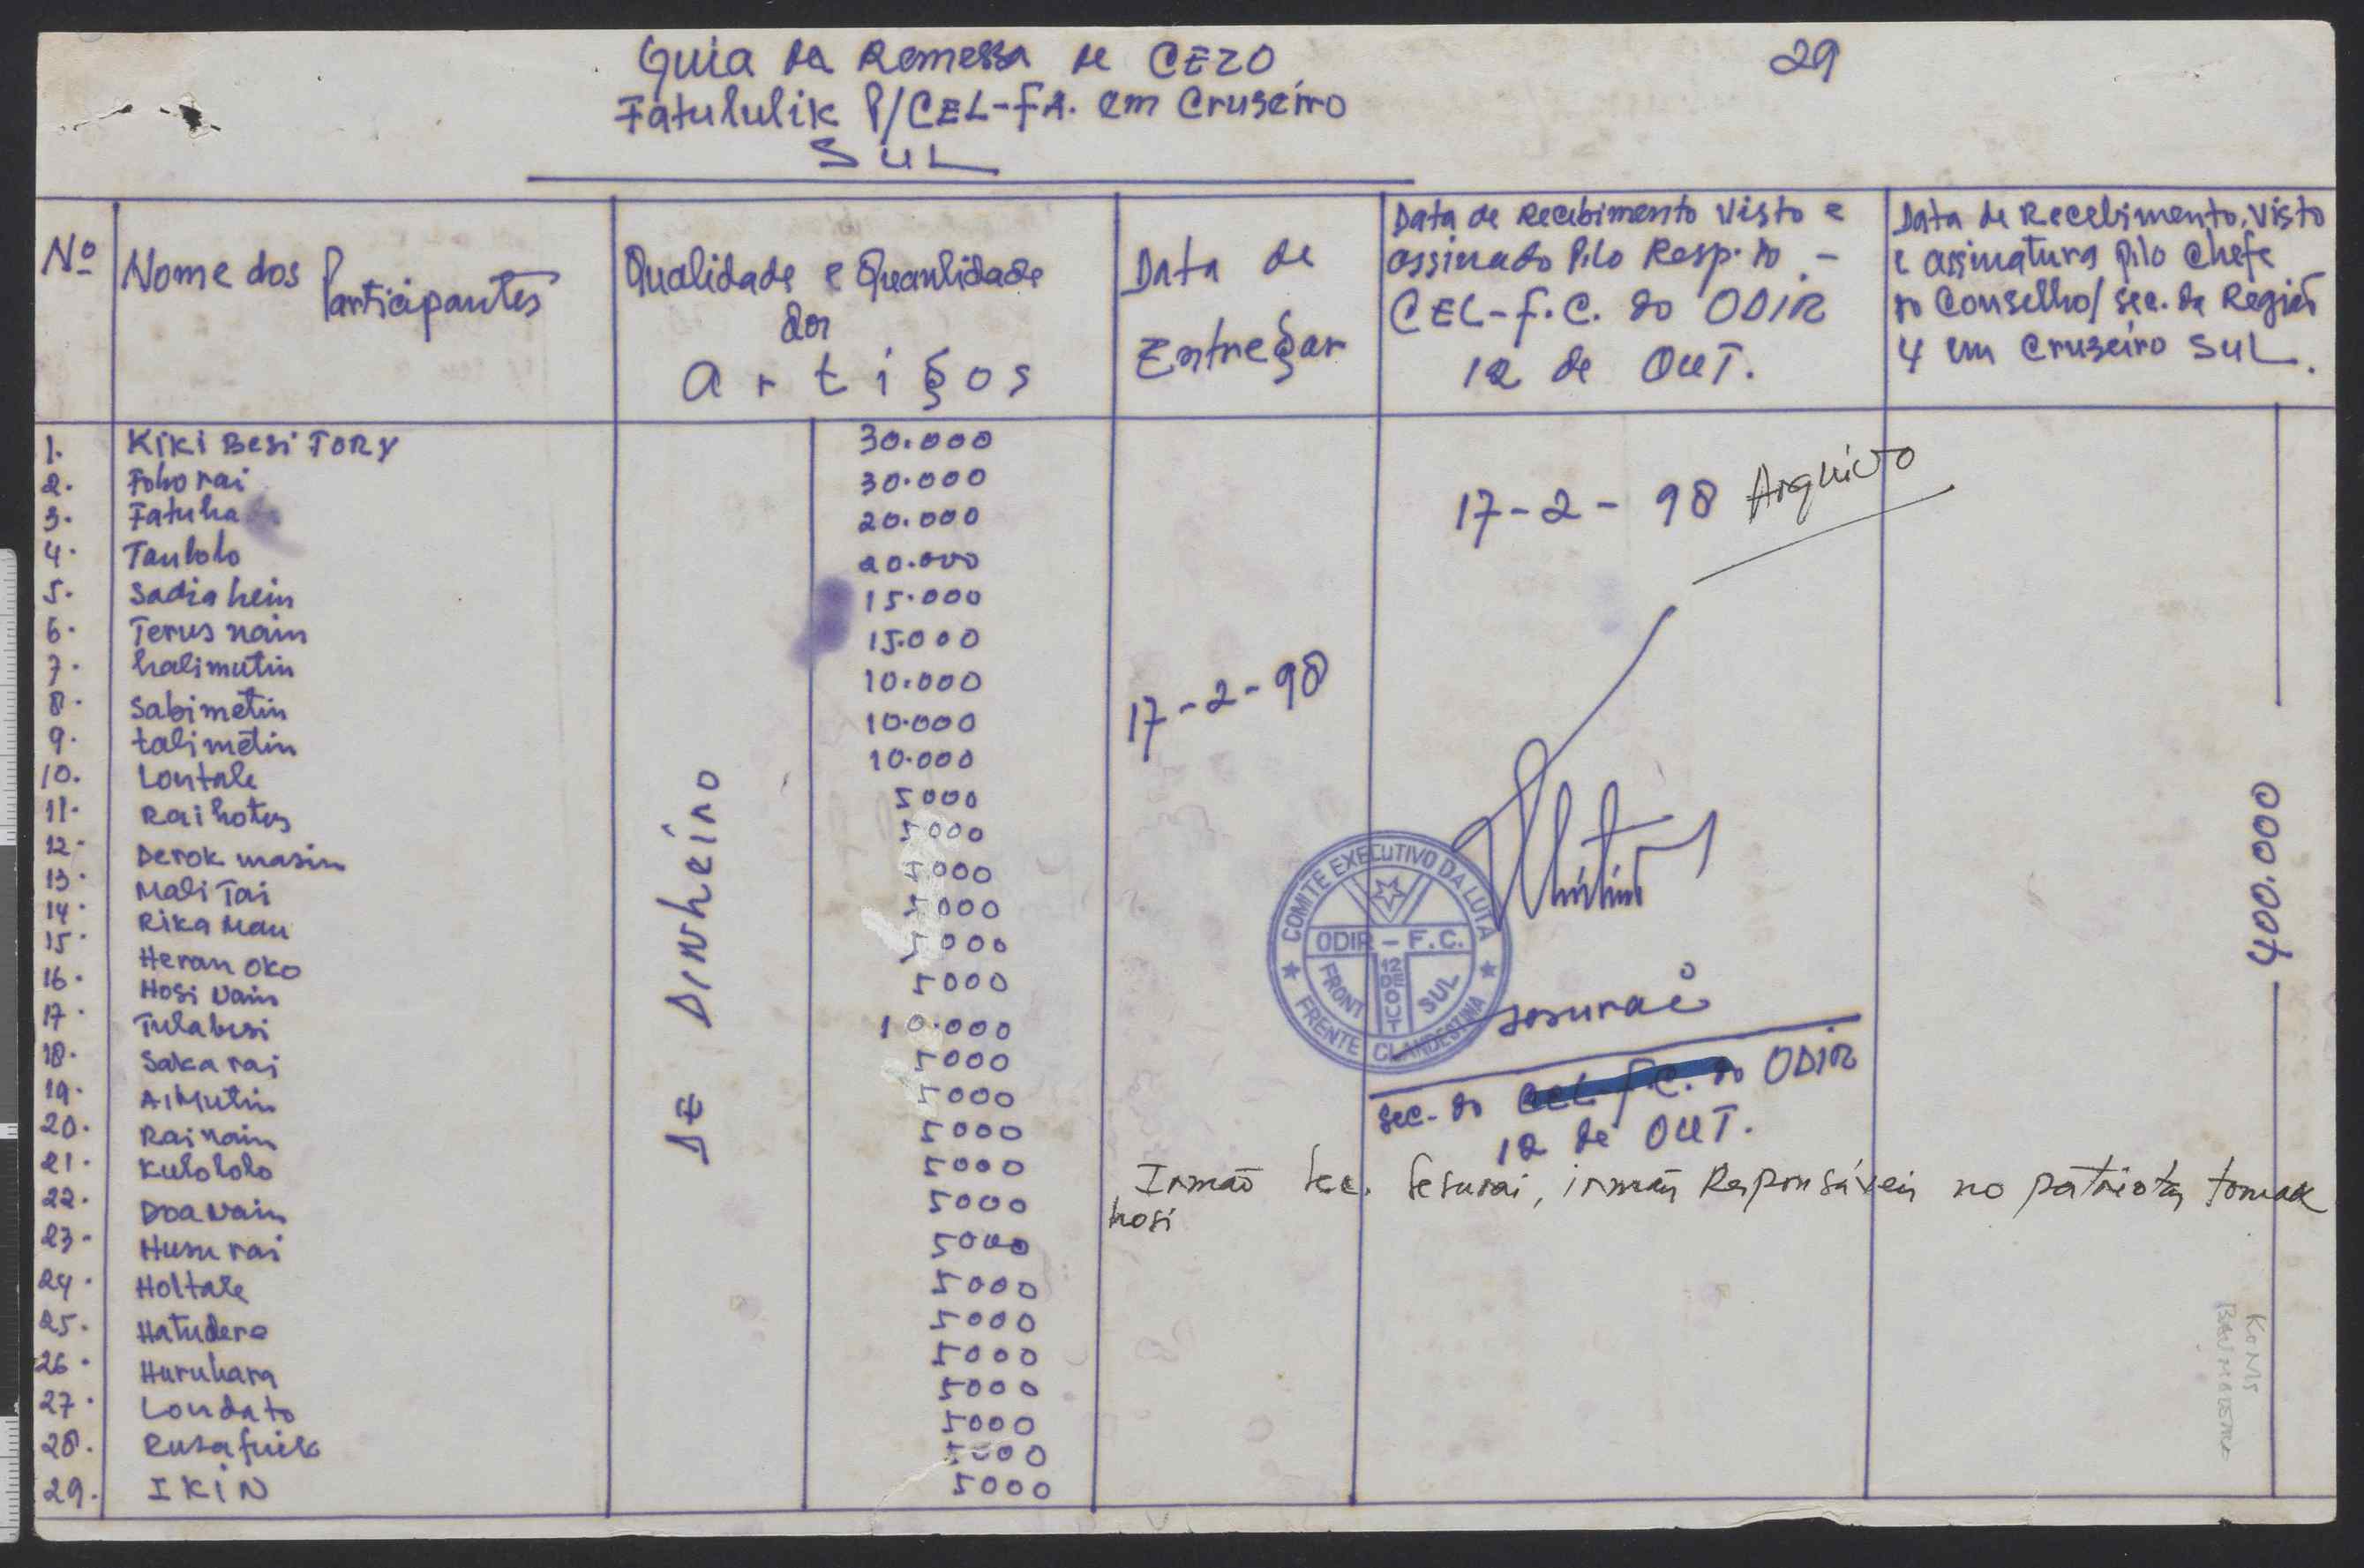 Guia da Remessa de CEZO
29
Fatululik P/CEL-FA. em Cruseiro
SUL
Nº
Nome dos Participantes
Qualidade e Quantidade
dos
artigos
Data de
Entregar
Data de Recebimento Visto e
assinado Pilo Resp. do -
CEL-F.C. do ODIR
12 de OUT.
Data de Recebimento, Visto
e assinatura pilo Chefe
do Conselho/ sec. da Região
4 em Cruzeiro SUL.
1. Kiki Besi TORY 30.000
2. Foho rai 30.000
3. Fatuha 20.000
4. Taulolo 20.000
5. Sadia hein 15.000
6. Terus nain 15.000
7. halimutin 10.000
8. Sabimetin 10.000
9. talimetin 10.000
10. Lontale 5000
11. Raihotus 5000
12. Derok masin 5000
13. Mali Tai 5000
14. Rika Mau 5000
15. Heran OKO 5000
16. Hosi Nain 10.000
17. Tulabesi 5000
18. Saka rai 5000
19. AiMutin 5000
20. Rai nain 5000
21. Kulololo 5000
22. Doa Nain 5000
23. Husu rai 5000
24. Holtale 5000
25. Hatudere 5000
26. Huruhara 5000
27. Londato 5000
28. Rusafuik 5000
29. IKIN 5000
DE DINHEIRO
17-2-98
17-2-98 Arquivo
COMITE EXECUTIVO DA LUTA
ODIR - F.C.
FRONT SUL
12 DE OUT
FRENTE CLANDESTINA
sosurai
Sec. do CEL-F.C. do ODIR
12 de OUT.
Irmão Sec. Sesurai, irmãos Responsáveis no patriotas tomak
hosi
400.000